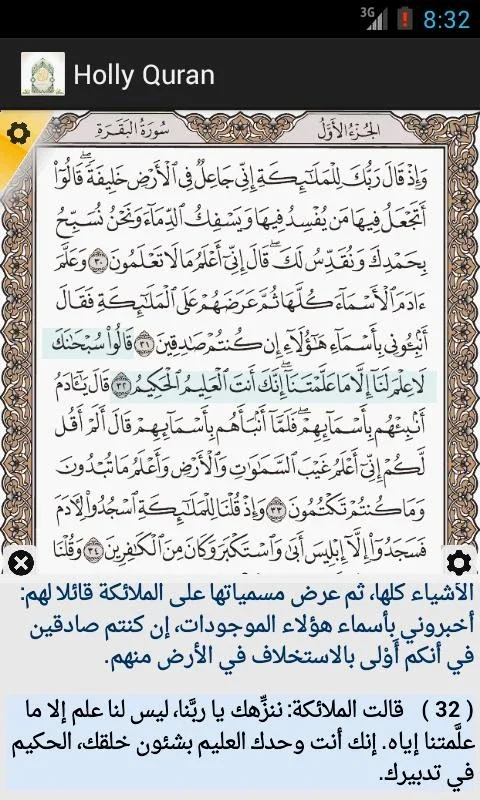 3G
8:32
Holly Quran
الجُزْءُ الأَوَّلُ سُورَةُ البَقَرَةِ
وَإِذْ قَالَ رَبُّكَ لِلْمَلَٰٓئِكَةِ إِنِّي جَاعِلٌ فِي الْأَرْضِ خَلِيفَةً ۖ قَالُوٓا۟
أَتَجْعَلُ فِيهَا مَن يُفْسِدُ فِيهَا وَيَسْفِكُ الدِّمَآءَ وَنَحْنُ نُسَبِّحُ
بِحَمْدِكَ وَنُقَدِّسُ لَكَ ۖ قَالَ إِنِّيٓ أَعْلَمُ مَا لَا تَعْلَمُونَ ٣٠ وَعَلَّمَ
ءَادَمَ الْأَسْمَآءَ كُلَّهَا ثُمَّ عَرَضَهُمْ عَلَى الْمَلَٰٓئِكَةِ فَقَالَ
أَنۢبِـُٔونِي بِأَسْمَآءِ هَٰٓؤُلَآءِ إِن كُنتُمْ صَٰدِقِينَ ٣١ قَالُوا۟ سُبْحَٰنَكَ
لَا عِلْمَ لَنَآ إِلَّا مَا عَلَّمْتَنَآ ۖ إِنَّكَ أَنتَ الْعَلِيمُ الْحَكِيمُ ٣٢ قَالَ يَٰٓـَٔادَمُ
أَنۢبِئْهُم بِأَسْمَآئِهِمْ ۖ فَلَمَّآ أَنۢبَأَهُم بِأَسْمَآئِهِمْ قَالَ أَلَمْ أَقُل
لَّكُمْ إِنِّيٓ أَعْلَمُ غَيْبَ السَّمَٰوَٰتِ وَالْأَرْضِ وَأَعْلَمُ مَا تُبْدُونَ
وَمَا كُنتُمْ تَكْتُمُونَ ٣٣ وَإِذْ قُلْنَا لِلْمَلَٰٓئِكَةِ اسْجُدُوا۟ لِـَٔادَمَ
فَسَجَدُوٓا۟ إِلَّآ إِبْلِيسَ أَبَىٰ وَاسْتَكْبَرَ وَكَانَ مِنَ الْكَٰفِرِينَ ٣٤ وَقُلْنَا
الأشياء كلها، ثم عرض مسمياتها على الملائكة قائلا لهم:
أخبروني بأسماء هؤلاء الموجودات، إن كنتم صادقين
في أنكم أَوْلى بالاستخلاف في الأرض منهم.
( 32 ) قالت الملائكة: ننزِّهك يا ربَّنا، ليس لنا علم إلا ما
علَّمتنا إياه. إنك أنت وحدك العليم بشئون خلقك، الحكيم
في تدبيرك.